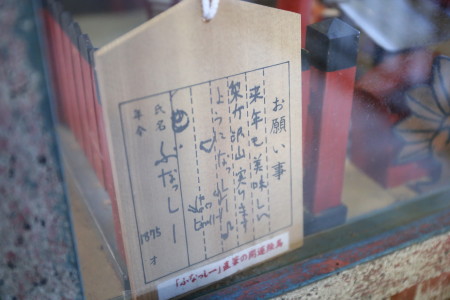 お願い事
来年も美味しい
梨が沢山実ります
ように なっしー
氏名
ふなっしー
年令
1875 才
「ふなっしー」直筆の開運絵馬